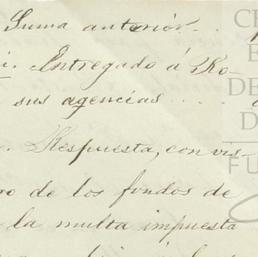 Suma anterior...
i. Entregado á Ro-
sus agencias....
. Respuesta, con vis-
ro de los fondos de
la multa impuesta